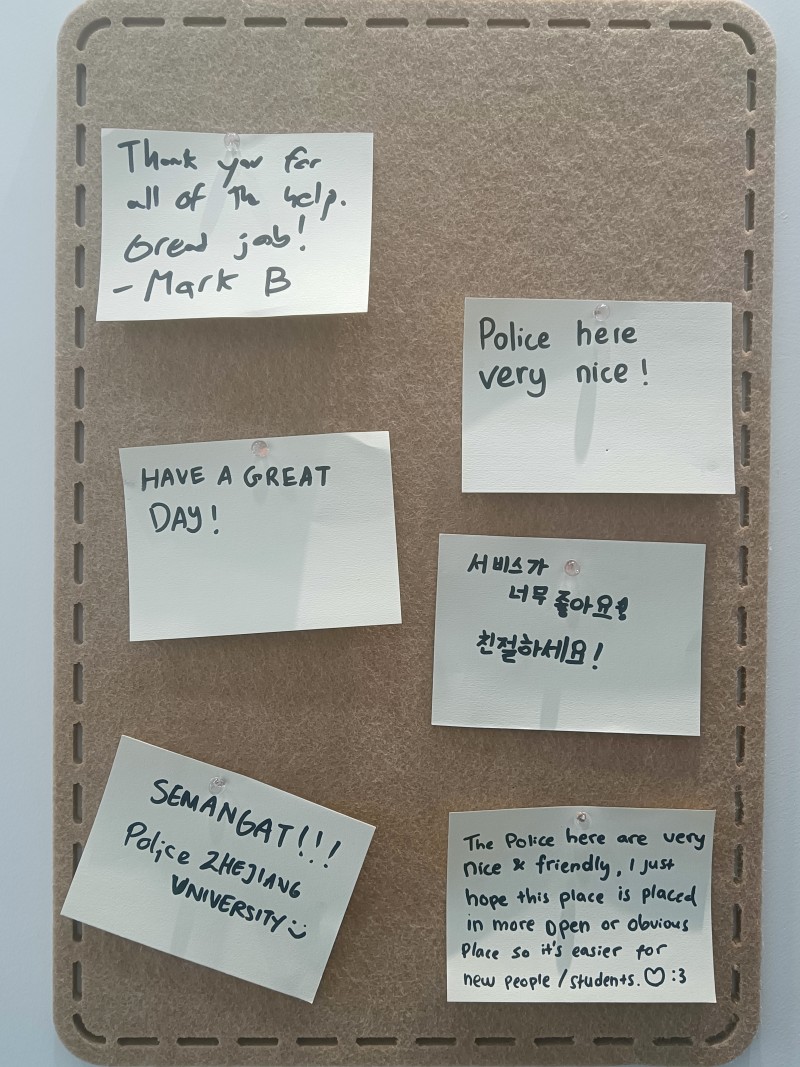 Thank you for
all of the help.
Great job!
- Mark B
Police here
very nice!
HAVE A GREAT
DAY!
서비스가
너무 좋아요!
친절하세요!
SEMANGAT!!!
Police ZHEJIANG
UNIVERSITY
The Police here are very
nice & friendly, I just
hope this place is placed
in more open or obvious
Place so it's easier for
new people / students. ♡ :3